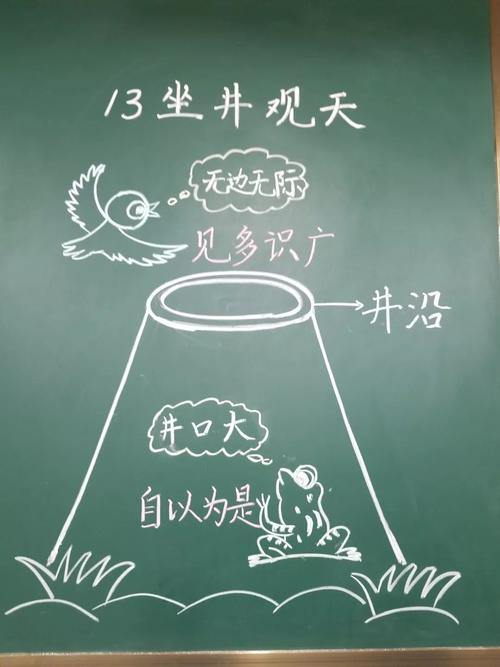 13坐井观天
无边无际
见多识广
井沿
井口大
自以为是